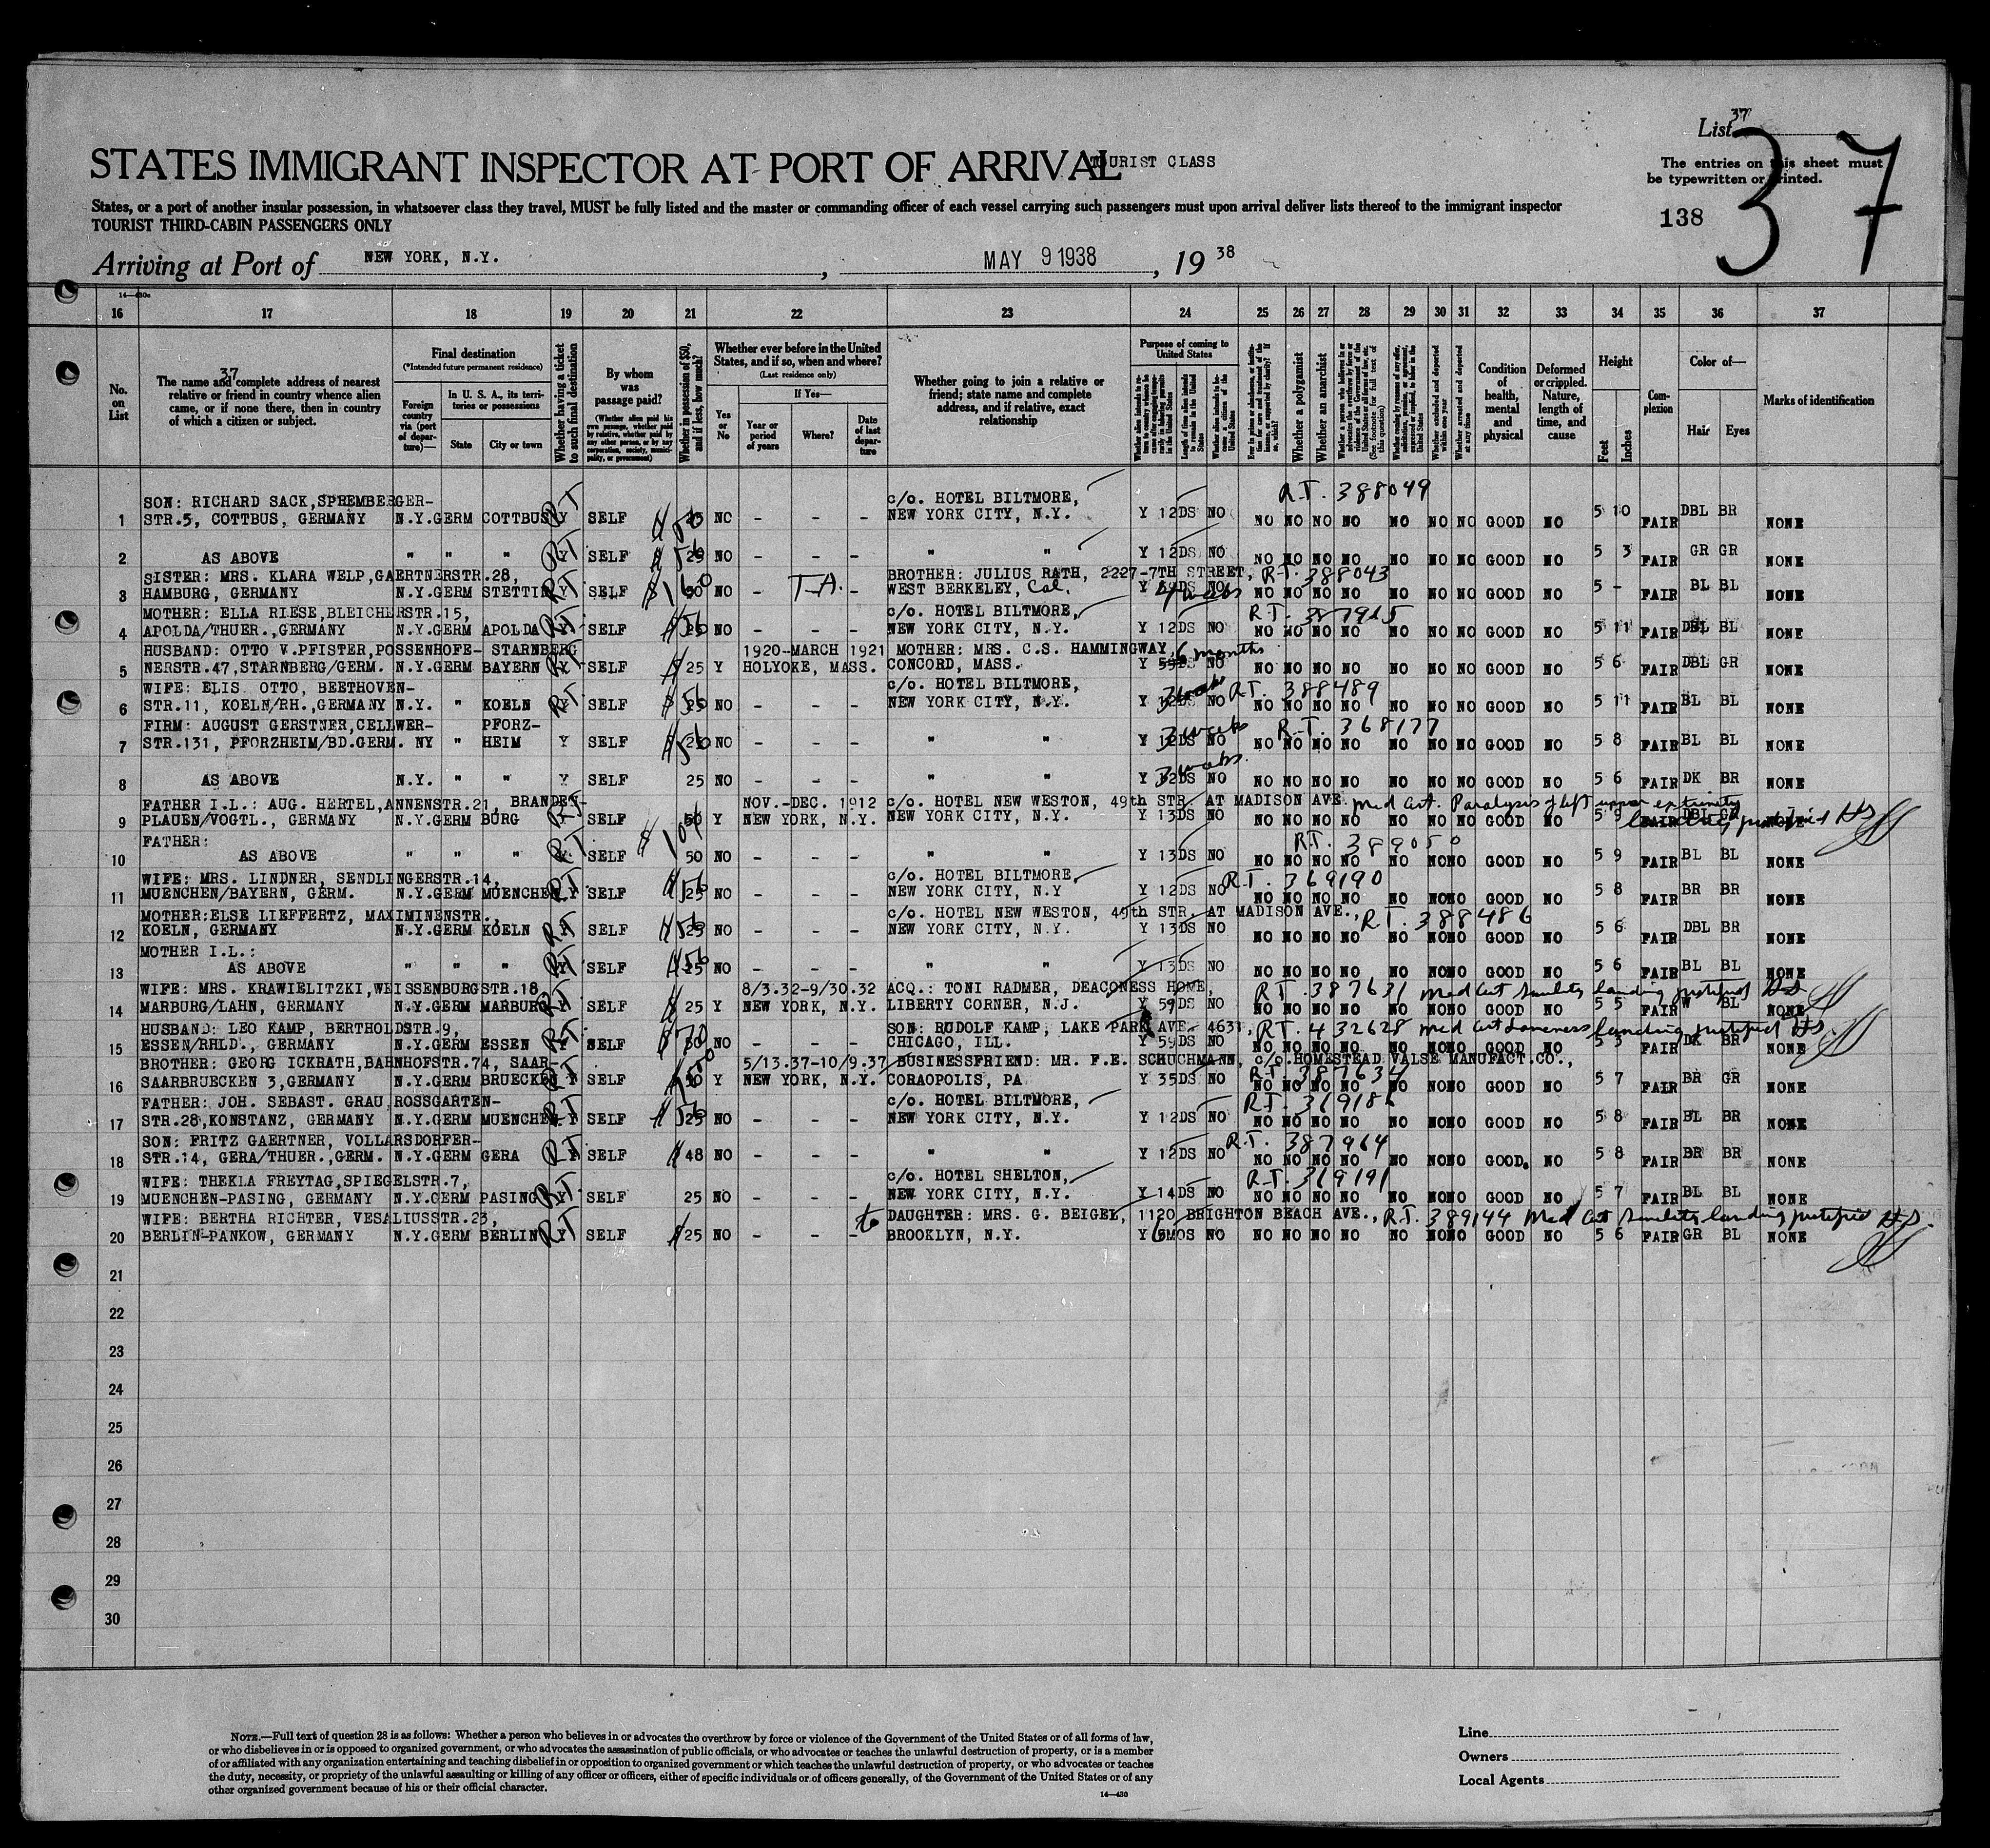 List 37
37
STATES IMMIGRANT INSPECTOR AT PORT OF ARRIVAL TOURIST CLASS
The entries on this sheet must
be typewritten or printed.
138
States, or a port of another insular possession, in whatsoever class they travel, MUST be fully listed and the master or commanding officer of each vessel carrying such passengers must upon arrival deliver lists thereof to the immigrant inspector
TOURIST THIRD-CABIN PASSENGERS ONLY
Arriving at Port of NEW YORK, N.Y. , MAY 9 1938 , 19 38
16 17 18 19 20 21 22 23 24 25 26 27 28 29 30 31 32 33 34 35 36 37
No. on List
37
The name and complete address of nearest relative or friend in country whence alien came, or if none there, then in country of which a citizen or subject.
Final destination
(*Intended future permanent residence)
Foreign country via (port of departure)—
In U. S. A., its territories or possessions
State
City or town
Whether having a ticket to such final destination
By whom was passage paid?
(Whether alien paid his own passage, whether paid by relative, whether paid by any other person, or by any corporation, society, municipality, or government)
Whether in possession of $50, and if less, how much?
Whether ever before in the United States, and if so, when and where?
(Last residence only)
Yes or No
If Yes—
Year or period of years
Where?
Date of last departure
Whether going to join a relative or friend; state name and complete address, and if relative, exact relationship
Purpose of coming to United States
Length of time alien intends to remain in the United States
Whether alien intends to become a citizen of the United States
Whether a polygamist
Whether an anarchist
Whether excluded and deported within one year
Whether arrested and deported at any time
Condition of health, mental and physical
Deformed or crippled. Nature, length of time, and cause
Height
Feet
Inches
Complexion
Color of—
Hair
Eyes
Marks of identification
SON: RICHARD SACK,SPREMBERGER- c/o. HOTEL BILTMORE, R.T. 388049
1 STR.5, COTTBUS, GERMANY N.Y.GERM COTTBUS Y RT SELF 25 $50 NO - - - NEW YORK CITY, N.Y. Y 12DS NO NO NO NO NO NO NO NO GOOD NO 5 10 FAIR DBL BR NONE
2 AS ABOVE " " " Y RT SELF 25 NO - - - " " Y 12DS NO NO NO NO NO NO NO NO GOOD NO 5 3 FAIR GR GR NONE
SISTER: MRS. KLARA WELP,GAERTNERSTR.28, BROTHER: JULIUS RATH, 2227-7TH STREET, R.T. 388043
3 HAMBURG, GERMANY N.Y.GERM STETTIN RT SELF $160 NO - T.A. - WEST BERKELEY, Cal. Y NO NO NO NO NO NO NO NO GOOD NO 5 - FAIR BL BL NONE
MOTHER: ELLA RIESE,BLEICHERSTR.15, c/o. HOTEL BILTMORE, R.T. 387965
4 APOLDA/THUER.,GERMANY N.Y.GERM APOLDA RT SELF NO - - - NEW YORK CITY, N.Y. Y 12DS NO NO NO NO NO NO NO NO GOOD NO 5 11 FAIR DBL BL NONE
HUSBAND: OTTO V.PFISTER,POSSENHOFE- STARNBERG 1920-MARCH 1921 MOTHER: MRS. C.S. HAMMINGWAY, 6 months
5 NERSTR.47,STARNBERG/GERM. N.Y.GERM BAYERN RT SELF 25 Y HOLYOKE, MASS. CONCORD, MASS. Y 59DS NO NO NO NO NO NO NO NO GOOD NO 5 6 FAIR DBL GR NONE
WIFE: ELIS. OTTO, BEETHOVEN- c/o. HOTEL BILTMORE, R.T. 388489
6 STR.11, KOELN/RH.,GERMANY N.Y. " KOELN RT SELF NO - - - NEW YORK CITY, N.Y. Y 12DS NO NO NO NO NO NO NO NO GOOD NO 5 11 FAIR BL BL NONE
FIRM: AUGUST GERSTNER,CELLWER- PFORZ- R.T. 368177
7 STR.131, PFORZHEIM/BD.GERM. NY " HEIM Y SELF NO - - - " " Y 12DS NO NO NO NO NO NO NO NO GOOD NO 5 8 FAIR BL BL NONE
8 AS ABOVE N.Y. " " Y SELF 25 NO - - - " " Y 12DS NO NO NO NO NO NO NO NO GOOD NO 5 6 FAIR DK BR NONE
FATHER I.L.: AUG. HERTEL,ANNENSTR.21, BRANDEN- NOV.-DEC. 1912 c/o. HOTEL NEW WESTON, 49th STR. AT MADISON AVE. Med Cert. Paralysis of left upper extremity
9 PLAUEN/VOGTL., GERMANY N.Y.GERM BURG SELF 50 Y NEW YORK, N.Y. NEW YORK CITY, N.Y. Y 13DS NO NO NO NO NO NO NO NO GOOD NO 5 9 FAIR DBL NONE
FATHER: R.T. 389050
10 AS ABOVE " " " RT SELF 50 NO - - - " " Y 13DS NO NO NO NO NO NO NO NO GOOD NO 5 9 FAIR BL BL NONE
WIFE: MRS. LINDNER, SENDLINGERSTR.14, c/o. HOTEL BILTMORE, R.T. 369190
11 MUENCHEN/BAYERN, GERM. N.Y.GERM MUENCHEN RT SELF NO - - - NEW YORK CITY, N.Y Y 12DS NO NO NO NO NO NO NO NO GOOD NO 5 8 FAIR BR BR NONE
MOTHER:ELSE LIEFFERTZ, MAXIMINENSTR., c/o. HOTEL NEW WESTON, 49th STR. AT MADISON AVE., R.T. 388486
12 KOELN, GERMANY N.Y.GERM KOELN RT SELF NO - - - NEW YORK CITY, N.Y. Y 13DS NO NO NO NO NO NO NO NO GOOD NO 5 6 FAIR DBL BR NONE
MOTHER I.L.:
13 AS ABOVE " " " RT SELF NO - - - " " Y 13DS NO NO NO NO NO NO NO NO GOOD NO 5 6 FAIR BL BL NONE
WIFE: MRS. KRAWIELITZKI,WEISSENBURGSTR.18, 8/3.32-9/30.32 ACQ.: TONI RADMER, DEACONESS HOME, R.T. 387631 Med Cert Senility landing justified
14 MARBURG/LAHN, GERMANY N.Y.GERM MARBURG SELF 25 Y NEW YORK, N.Y. LIBERTY CORNER, N.J. Y 59DS NO NO NO NO NO NO NO NO GOOD NO 5 5 FAIR W BL NONE
HUSBAND: LEO KAMP, BERTHOLDSTR.9, SON: RUDOLF KAMP, LAKE PARK AVE. 4631, R.T. 432628 Med Cert Lameness landing justified
15 ESSEN/RHLD., GERMANY N.Y.GERM ESSEN RT SELF NO - - - CHICAGO, ILL. Y 59DS NO NO NO NO NO NO NO NO GOOD NO 5 3 FAIR DK BR NONE
BROTHER: GEORG ICKRATH,BAHNHOFSTR.74, SAAR- 5/13.37-10/9.37 BUSINESSFRIEND: MR. F.E. SCHUCHMANN, c/o.HOMESTEAD VALSE MANUFACT.CO.,
16 SAARBRUECKEN 3,GERMANY N.Y.GERM BRUECKEN SELF Y NEW YORK, N.Y. CORAOPOLIS, PA Y 35DS NO R.T. 387634 NO NO NO NO NO NO NO GOOD NO 5 7 FAIR BR GR NONE
FATHER: JOH. SEBAST. GRAU,ROSSGARTEN- c/o. HOTEL BILTMORE, R.T. 369186
17 STR.28,KONSTANZ, GERMANY N.Y.GERM MUENCHEN RT SELF NO - - - NEW YORK CITY, N.Y. Y 12DS NO NO NO NO NO NO NO NO GOOD NO 5 8 FAIR BL BR NONE
SON: FRITZ GAERTNER, VOLLARSDORFER- R.T. 387964
18 STR.14, GERA/THUER.,GERM. N.Y.GERM GERA RT SELF 48 NO - - - " " Y 12DS NO NO NO NO NO NO NO NO GOOD. NO 5 8 FAIR BR BR NONE
WIFE: THEKLA FREYTAG,SPIEGELSTR.7, c/o. HOTEL SHELTON, R.T. 369191
19 MUENCHEN-PASING, GERMANY N.Y.GERM PASING RT SELF 25 NO - - - NEW YORK CITY, N.Y. Y 14DS NO NO NO NO NO NO NO NO GOOD NO 5 7 FAIR BL BL NONE
WIFE: BERTHA RICHTER, VESALIUSSTR.23, to DAUGHTER: MRS. G. BEIGEL, 1120 BRIGHTON BEACH AVE., R.T. 389144 Med Cert Senility landing justified
20 BERLIN-PANKOW, GERMANY N.Y.GERM BERLIN RT SELF 25 NO - - - BROOKLYN, N.Y. Y 6MOS NO NO NO NO NO NO NO NO GOOD NO 5 6 FAIR GR BL NONE
21
22
23
24
25
26
27
28
29
30
NOTE.—Full text of question 28 is as follows: Whether a person who believes in or advocates the overthrow by force or violence of the Government of the United States or of all forms of law,
or who disbelieves in or is opposed to organized government, or who advocates the assassination of public officials, or who advocates or teaches the unlawful destruction of property, or is a member
of or affiliated with any organization entertaining and teaching disbelief in or opposition to organized government or which teaches the unlawful destruction of property, or who advocates or teaches
the duty, necessity, or propriety of the unlawful assaulting or killing of any officer or officers, either of specific individuals or of officers generally, of the Government of the United States or of any
other organized government because of his or their official character.
14—430
Line
Owners
Local Agents